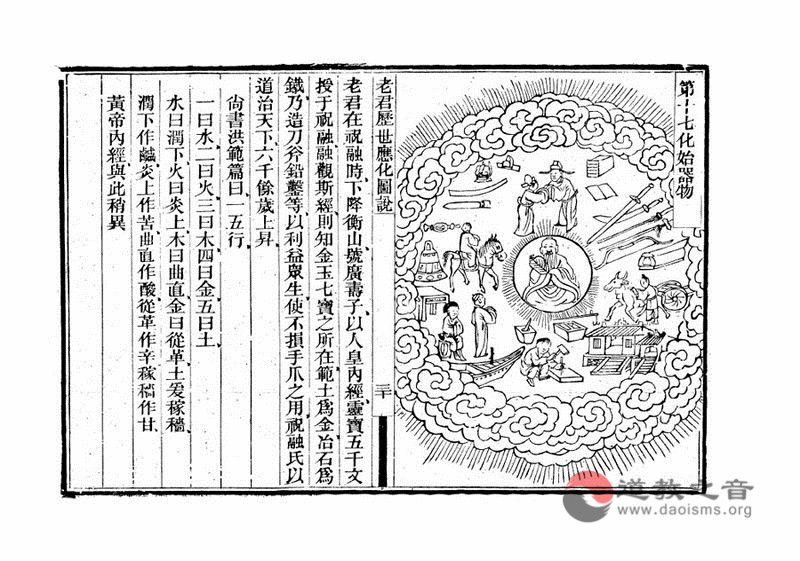 第十七化始器物
老君歷世應化圖說
三十
老君在祝融時下降衡山號廣壽子以人皇內經靈寶五千文
授于祝融融觀斯經則知金玉七寶之所在範土爲金冶石爲
鐵乃造刀斧鉛鑿等以利益眾生使不損手爪之用祝融氏以
道治天下六千餘歲上昇
尙書洪範篇曰一五行
一曰水二曰火三曰木四曰金五曰土
水曰潤下火曰炎上木曰曲直金曰從革土爰稼穡
潤下作鹹炎上作苦曲直作酸從革作辛稼穡作甘
黃帝內經與此稍異
道教之音
www.daoisms.org